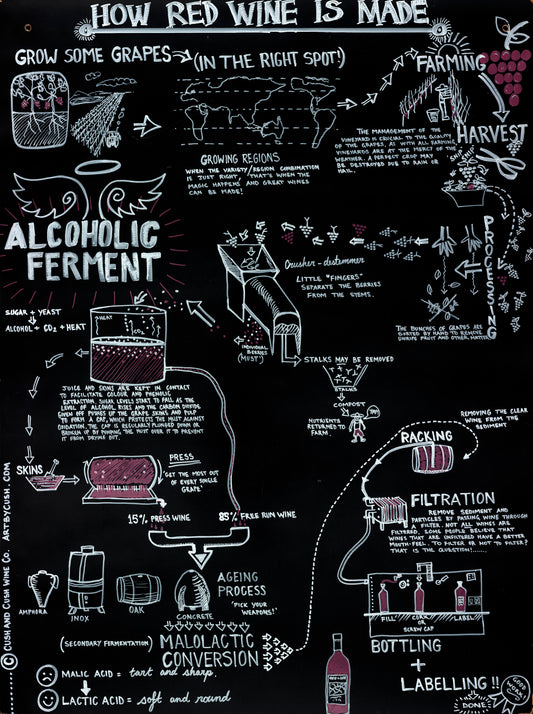 HOW RED WINE IS MADE
GROW SOME GRAPES
(IN THE RIGHT SPOT!)
FARMING
THE MANAGEMENT OF THE
VINEYARD IS CRUCIAL TO THE QUALITY
OF THE GRAPES, AS WITH ALL FARMING
VINEYARDS ARE AT THE MERCY OF THE
WEATHER. A PERFECT CROP MAY
BE DESTROYED DUE TO RAIN OR
HAIL.
HARVEST
GROWING REGIONS
WHEN THE VARIETY/REGION COMBINATION
IS JUST RIGHT, THAT'S WHEN THE
MAGIC HAPPENS AND GREAT WINES
CAN BE MADE!
PROCESSING
THE BUNCHES OF GRAPES ARE
SORTED BY HAND TO REMOVE
UNRIPE FRUIT AND OTHER MATTER
Crusher-destemmer
LITTLE "FINGERS"
SEPARATE THE BERRIES
FROM THE STEMS.
INDIVIDUAL
BERRIES
(MUST)
STALKS MAY BE REMOVED
STALKS
COMPOST
NUTRIENTS
RETURNED TO
FARM.
ALCOHOLIC
FERMENT
SUGAR + YEAST
ALCOHOL + CO2 + HEAT
HEAT
CO2
JUICE AND SKINS ARE KEPT IN CONTACT
TO FACILITATE COLOUR AND PHENOLIC
EXTRACTION. SUGAR LEVELS START TO FALL AS THE
LEVEL OF ALCOHOL RISES AND THE CARBON DIOXIDE
GIVEN OFF PUSHES UP THE GRAPE SKINS AND PULP
TO FORM A CAP, WHICH PROTECTS THE MUST AGAINST
OXIDATION. THE CAP IS REGULARLY PLUNGED DOWN OR
BROKEN UP BY PUMPING THE MUST OVER IT TO PREVENT
IT FROM DRYING OUT.
SKINS
PRESS
'GET THE MOST OUT
OF EVERY SINGLE
GRAPE'
15% PRESS WINE
85% FREE RUN WINE
AMPHORA
INOX
OAK
CONCRETE
AGEING
PROCESS
'PICK YOUR
WEAPONS!'
(SECONDARY FERMENTATION)
MALOLACTIC
CONVERSION
MALIC ACID = tart and sharp.
LACTIC ACID = soft and round
REMOVING THE CLEAR
WINE FROM THE
SEDIMENT
RACKING
FILTRATION
REMOVE SEDIMENT AND
PARTICLES BY PASSING WINE THROUGH
A FILTER. NOT ALL WINES ARE
FILTERED. SOME PEOPLE BELIEVE THAT
WINES THAT ARE UNFILTERED HAVE A BETTER
MOUTH-FEEL. TO FILTER OR NOT TO FILTER?
THAT IS THE QUESTION!......
FILL
CORK
OR
SCREW CAP
LABEL
BOTTLING
+
LABELLING!!
DONE
© CUSH AND CUSH WINE CO. ARTBYCUSH.COM